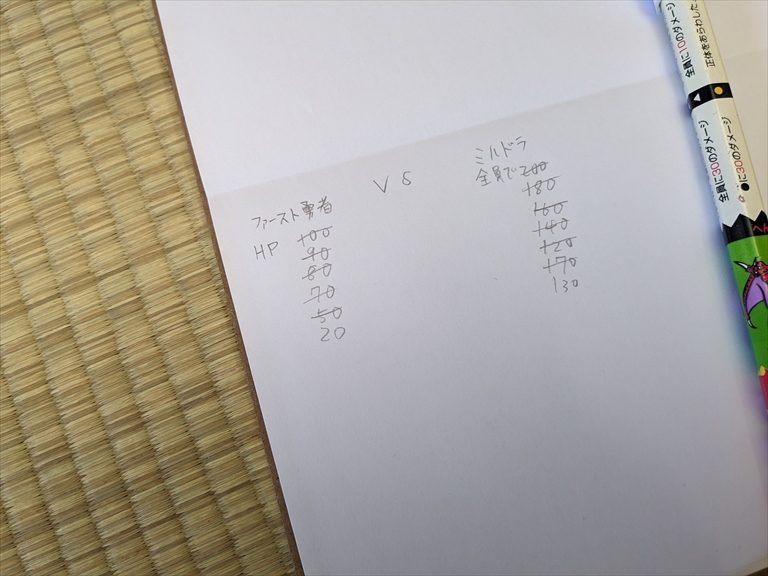 ファースト勇者
HP 100
90
80
70
50
20
VS
ミルドラ
全員で200
180
160
140
120
170
130
全員に10のダメージ
正体をあらわした
全員に30のダメージ
●に30のダメージ